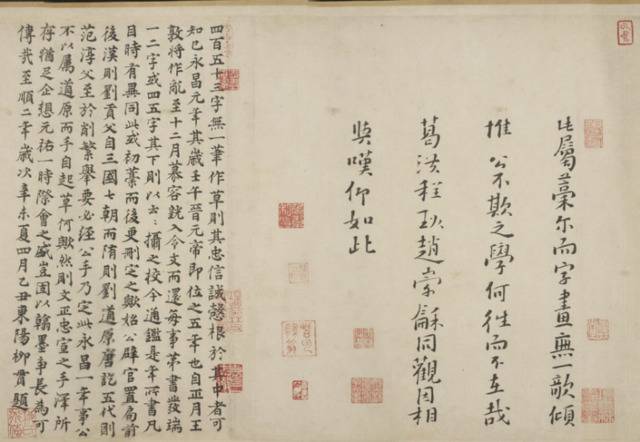 此屬藁爾而字畫無一欹傾
推公不欺之學何往而不在哉
葛洪程珌趙崇龢同觀因相
與嘆仰如此
四百五十三字無一筆作草則其忠信誠慤根於其中者可
知已永昌元年其歲壬午晉元帝即位之五年也自正月王
敦將作亂至十二月慕容皝入令支而還每事第書發端
一二字或四五字其下則以云云攝之校今通鑑是年所書凡
目時有異同此或初藁而後更刪定之歟始公辟官置局前
後漢則劉貢父自三國七朝而隋則劉道原唐訖五代則
范淳父至於削繁舉要必經公手乃定此永昌一年事公
不以屬道原而手自起草何歟然則文正忠宣之手澤所
存猶足企想元祐一時際會之盛豈固以翰墨爭長為可
傳哉至順二年歲次辛未夏四月乙丑東陽柳貫題